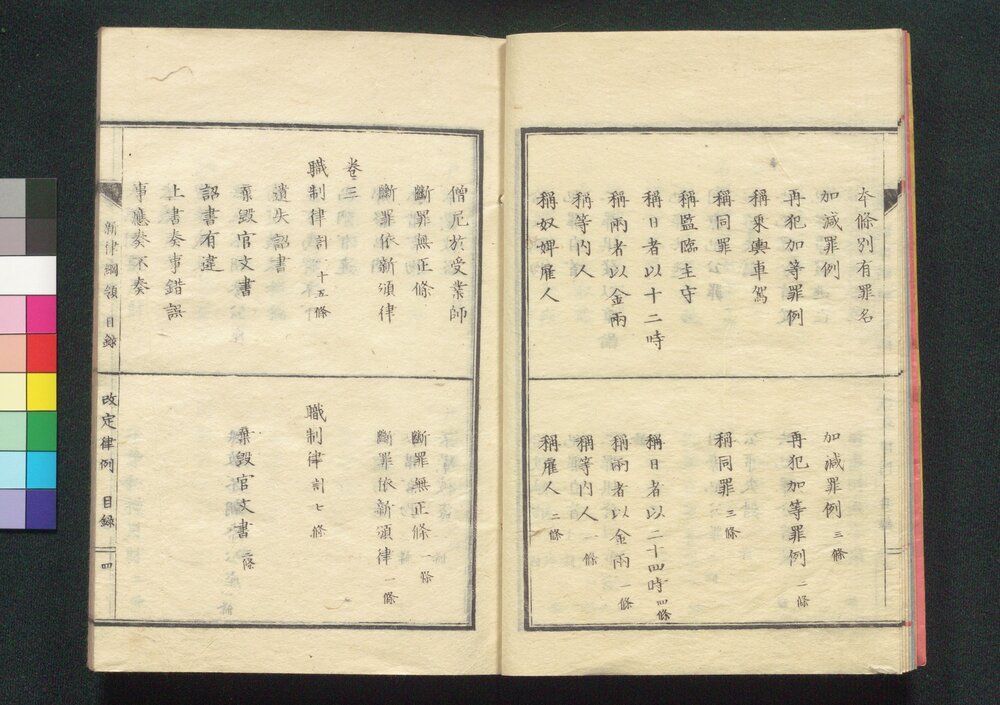 本條別有罪名
加減罪例
再犯加等罪例
稱乘輿車駕
稱同罪
稱監臨主守
稱日者以十二時
稱兩者以金兩
稱等的人
稱奴婢雇人
加減罪例 三條
再犯加等罪例 二條
稱同罪 三條
稱日者以二十四時 四條
稱兩者以金兩 一條
稱等的人 一條
稱雇人 二條
僧尼於受業師
斷罪無正條
斷罪依新頒律
卷三
職制律 計二十五條
遺失詔書
棄毀官文書
詔書有違
上書奏事錯誤
事應奏不奏
斷罪無正條 一條
斷罪依新頒律 一條
職制律 計七條
棄毀官文書 二條
新律綱領 目錄
改定律例 目錄
四